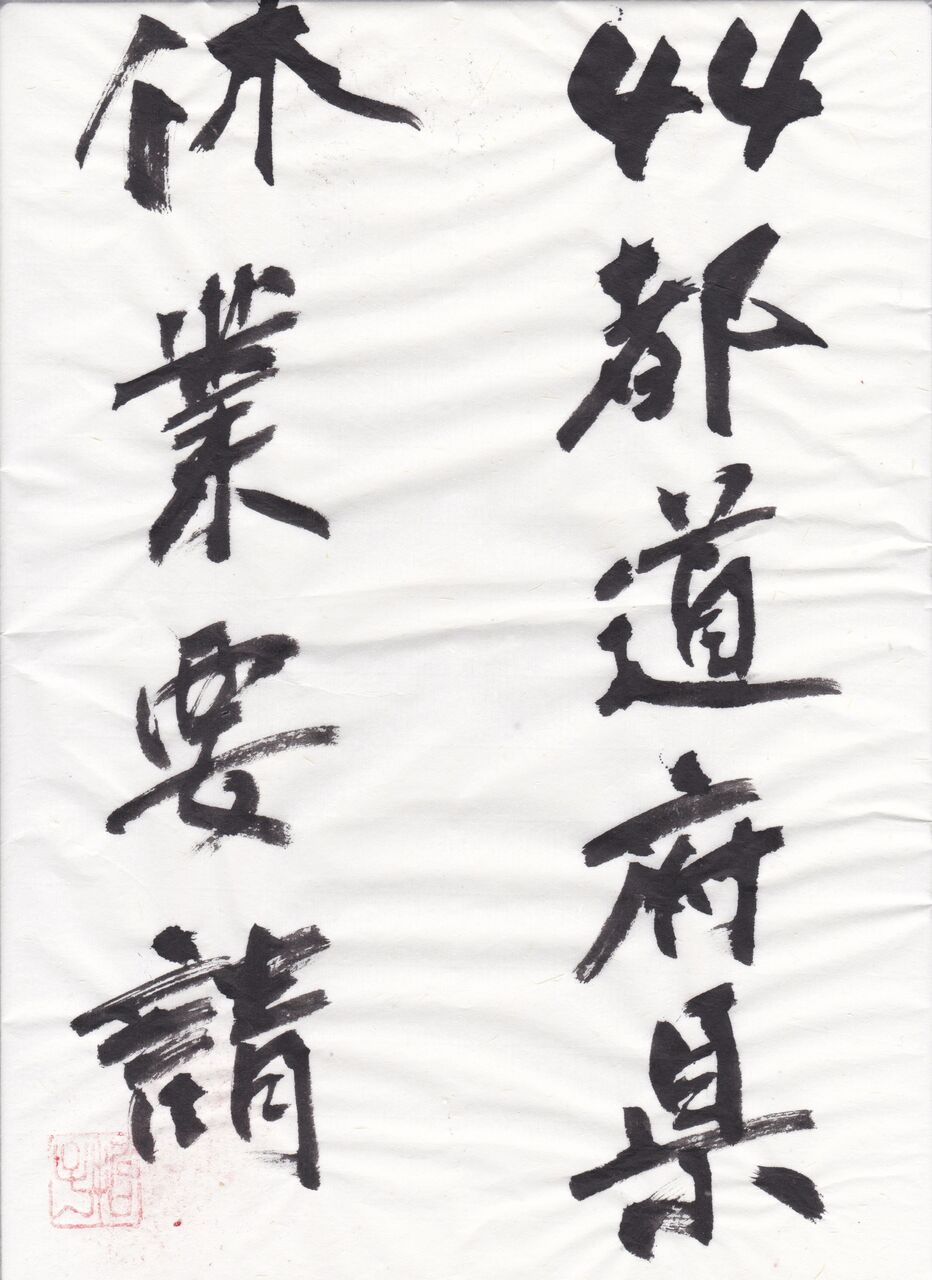 44都道府県
休業要請